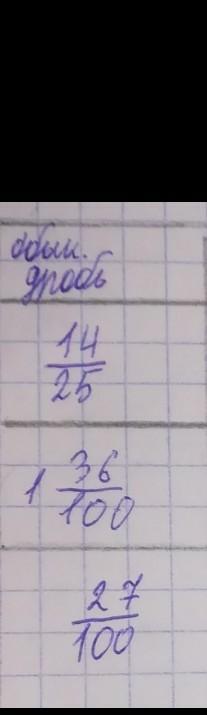 обык.
дробь
14/25
1 36/100
27/100